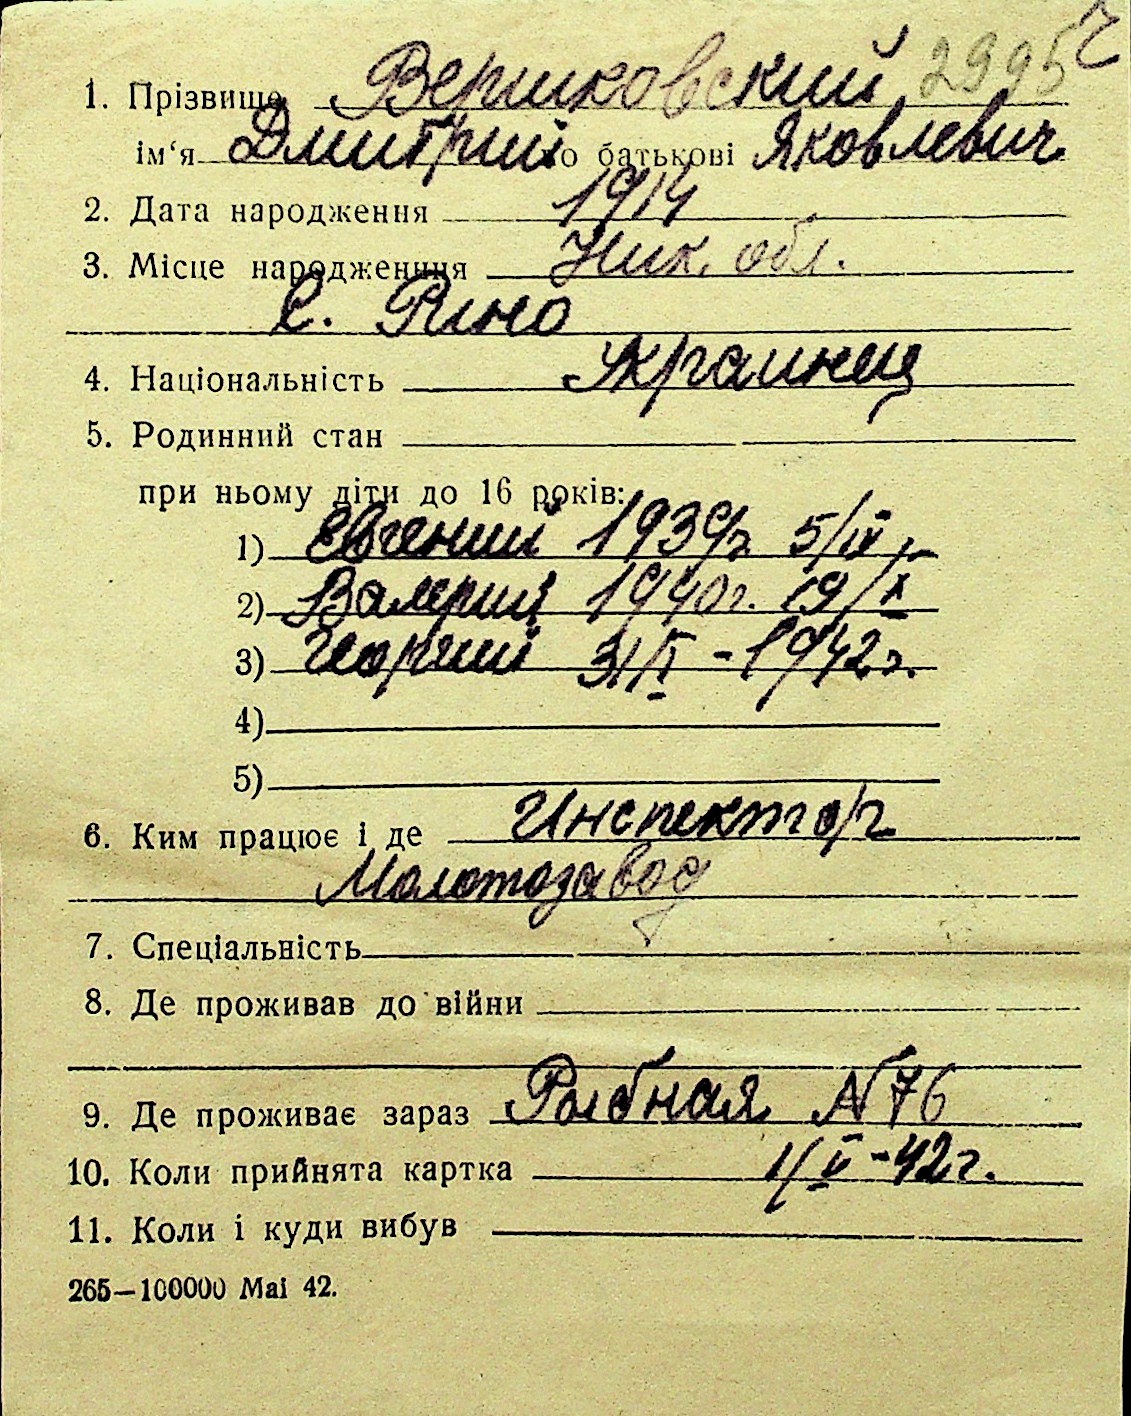 1. Прізвище Вершковский 2995
ім‘я Дмитрий по батькові Яковлевич
2. Дата народження 1914
3. Місце народженння Ник. обл.
с. Рино
4. Національність Украинец
5. Родинний стан
при ньому діти до 16 років:
1) Евгений 1939г. 5/IX
2) Валерий 1940г. 19/X
3) Георгий 31/I - 1942г.
4)
5)
6. Ким працює і де Инспектор
Молотозавод
7. Спеціальність
8. Де проживав до війни
9. Де проживає зараз Рыбная N 76
10. Коли прийнята картка 1/V - 42г.
11. Коли і куди вибув
265—100000 Mai 42.